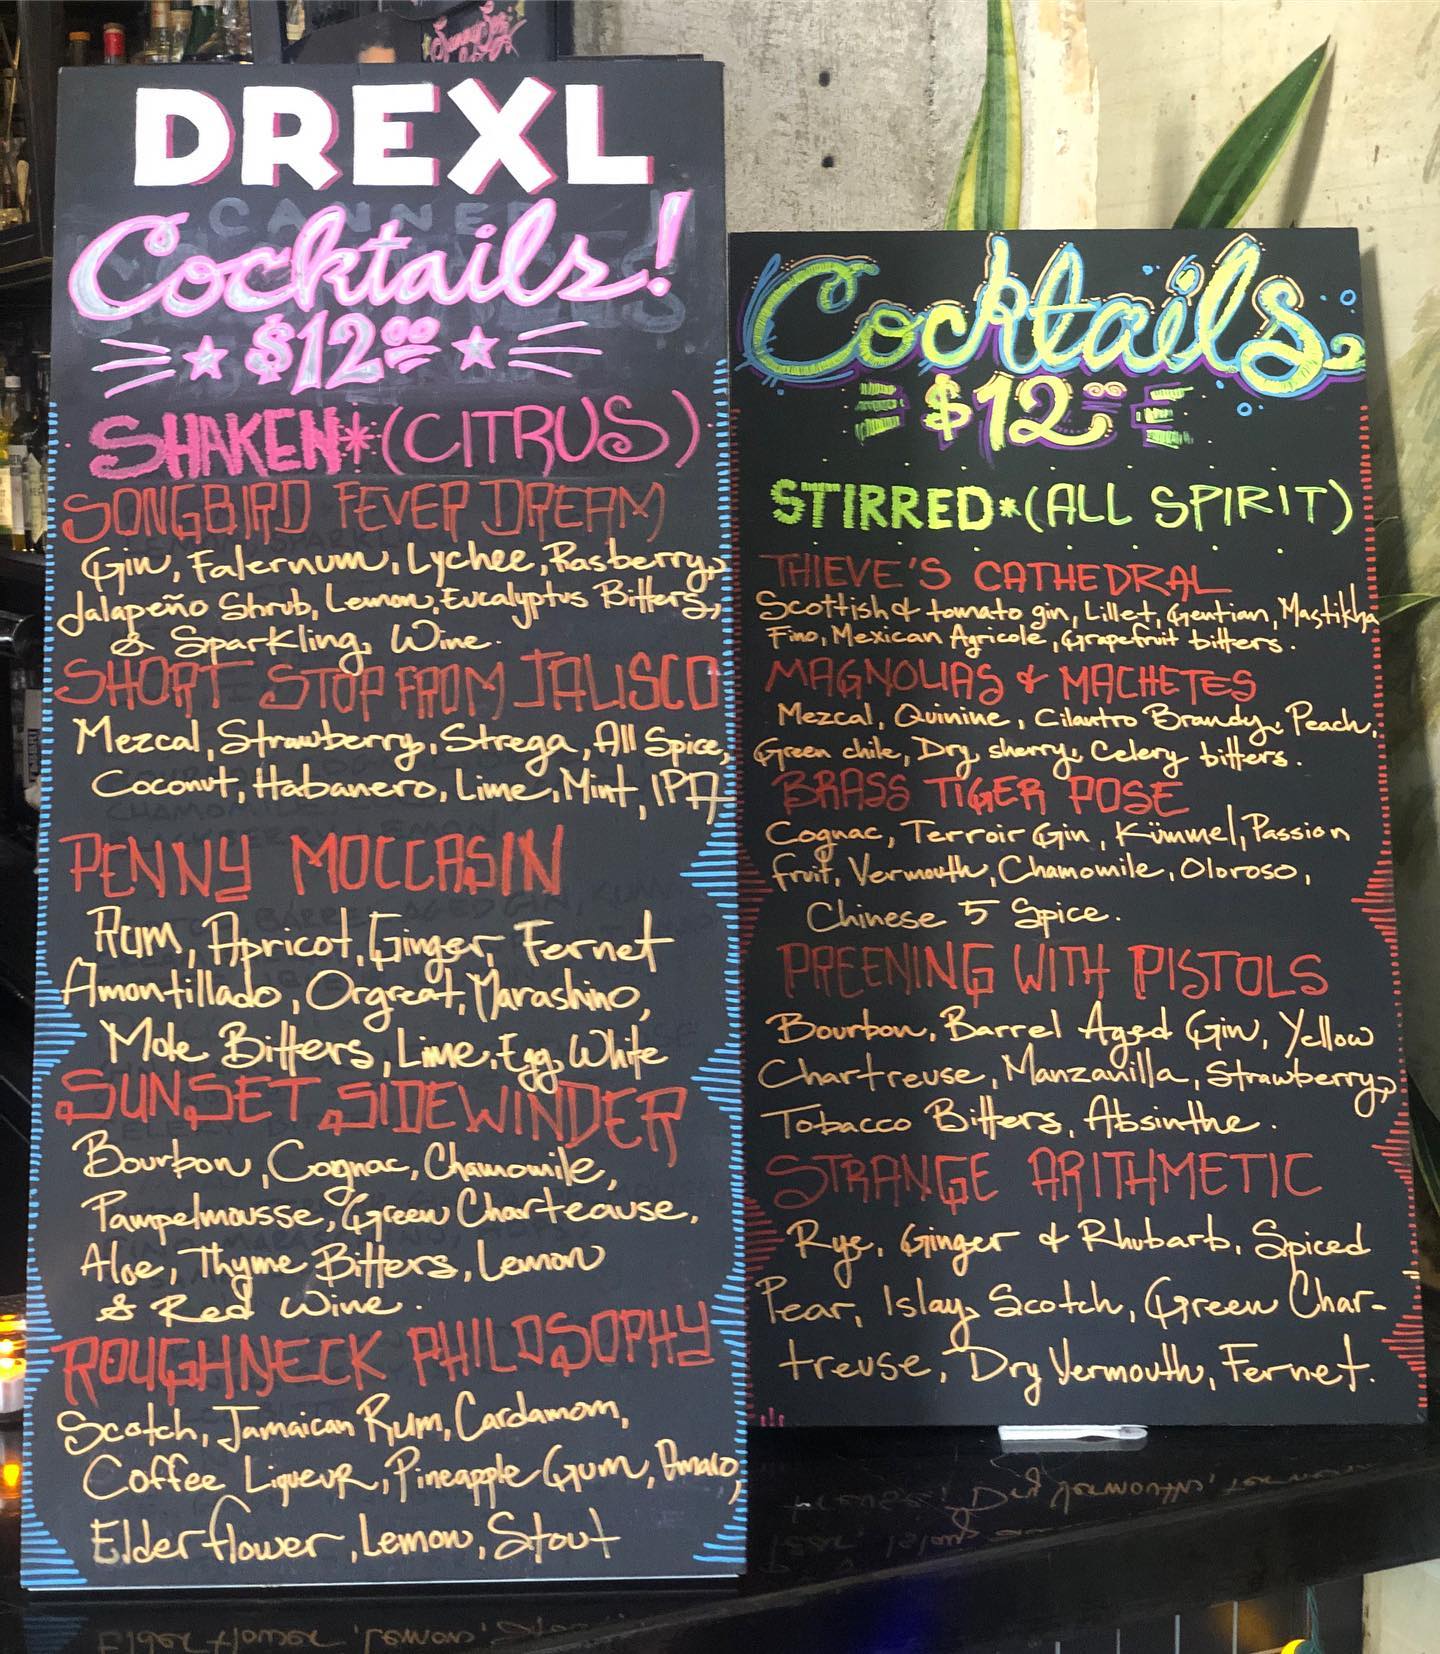 DREXL
Cocktails!
$12.00
SHAKEN*(CITRUS)
SONGBIRD FEVER DREAM
Gin, Falernum, Lychee, Rasberry,
Jalapeño Shrub, Lemon, Eucalyptus Bitters,
& Sparkling Wine.
SHORT STOP FROM JALISCO
Mezcal, Strawberry, Strega, All Spice,
Coconut, Habanero, Lime, Mint, IPA
PENNY MOCCASIN
Rum, Apricot, Ginger, Fernet
Amontillado, Orgreat, Marashino,
Mole Bitters, Lime, Egg White
SUNSET SIDEWINDER
Bourbon, Cognac, Chamomile,
Pampelmousse, Green Charteause,
Aloe, Thyme Bitters, Lemon
& Red Wine.
ROUGHNECK PHILOSOPHY
Scotch, Jamaican Rum, Cardamom,
Coffee Liqueur, Pineapple Gum, Amaro,
Elderflower, Lemon, Stout
Cocktails
$12.00
STIRRED*(ALL SPIRIT)
THIEVE'S CATHEDRAL
Scottish & tomato gin, Lillet, Gentian, Mastikha
Fino, Mexican Agricole, Grapefruit bitters.
MAGNOLIAS & MACHETES
Mezcal, Quinine, Cilantro Brandy, Peach,
Green chile, Dry sherry, Celery bitters.
BRASS TIGER POSE
Cognac, Terroir Gin, Kümmel, Passion
fruit, Vermouth, Chamomile, Oloroso,
Chinese 5 Spice.
PREENING WITH PISTOLS
Bourbon, Barrel Aged Gin, Yellow
Chartreuse, Manzanilla, Strawberry,
Tobacco Bitters, Absinthe.
STRANGE ARITHMETIC
Rye, Ginger & Rhubarb, Spiced
Pear, Islay Scotch, Green Char-
treuse, Dry Vermouth, Fernet.